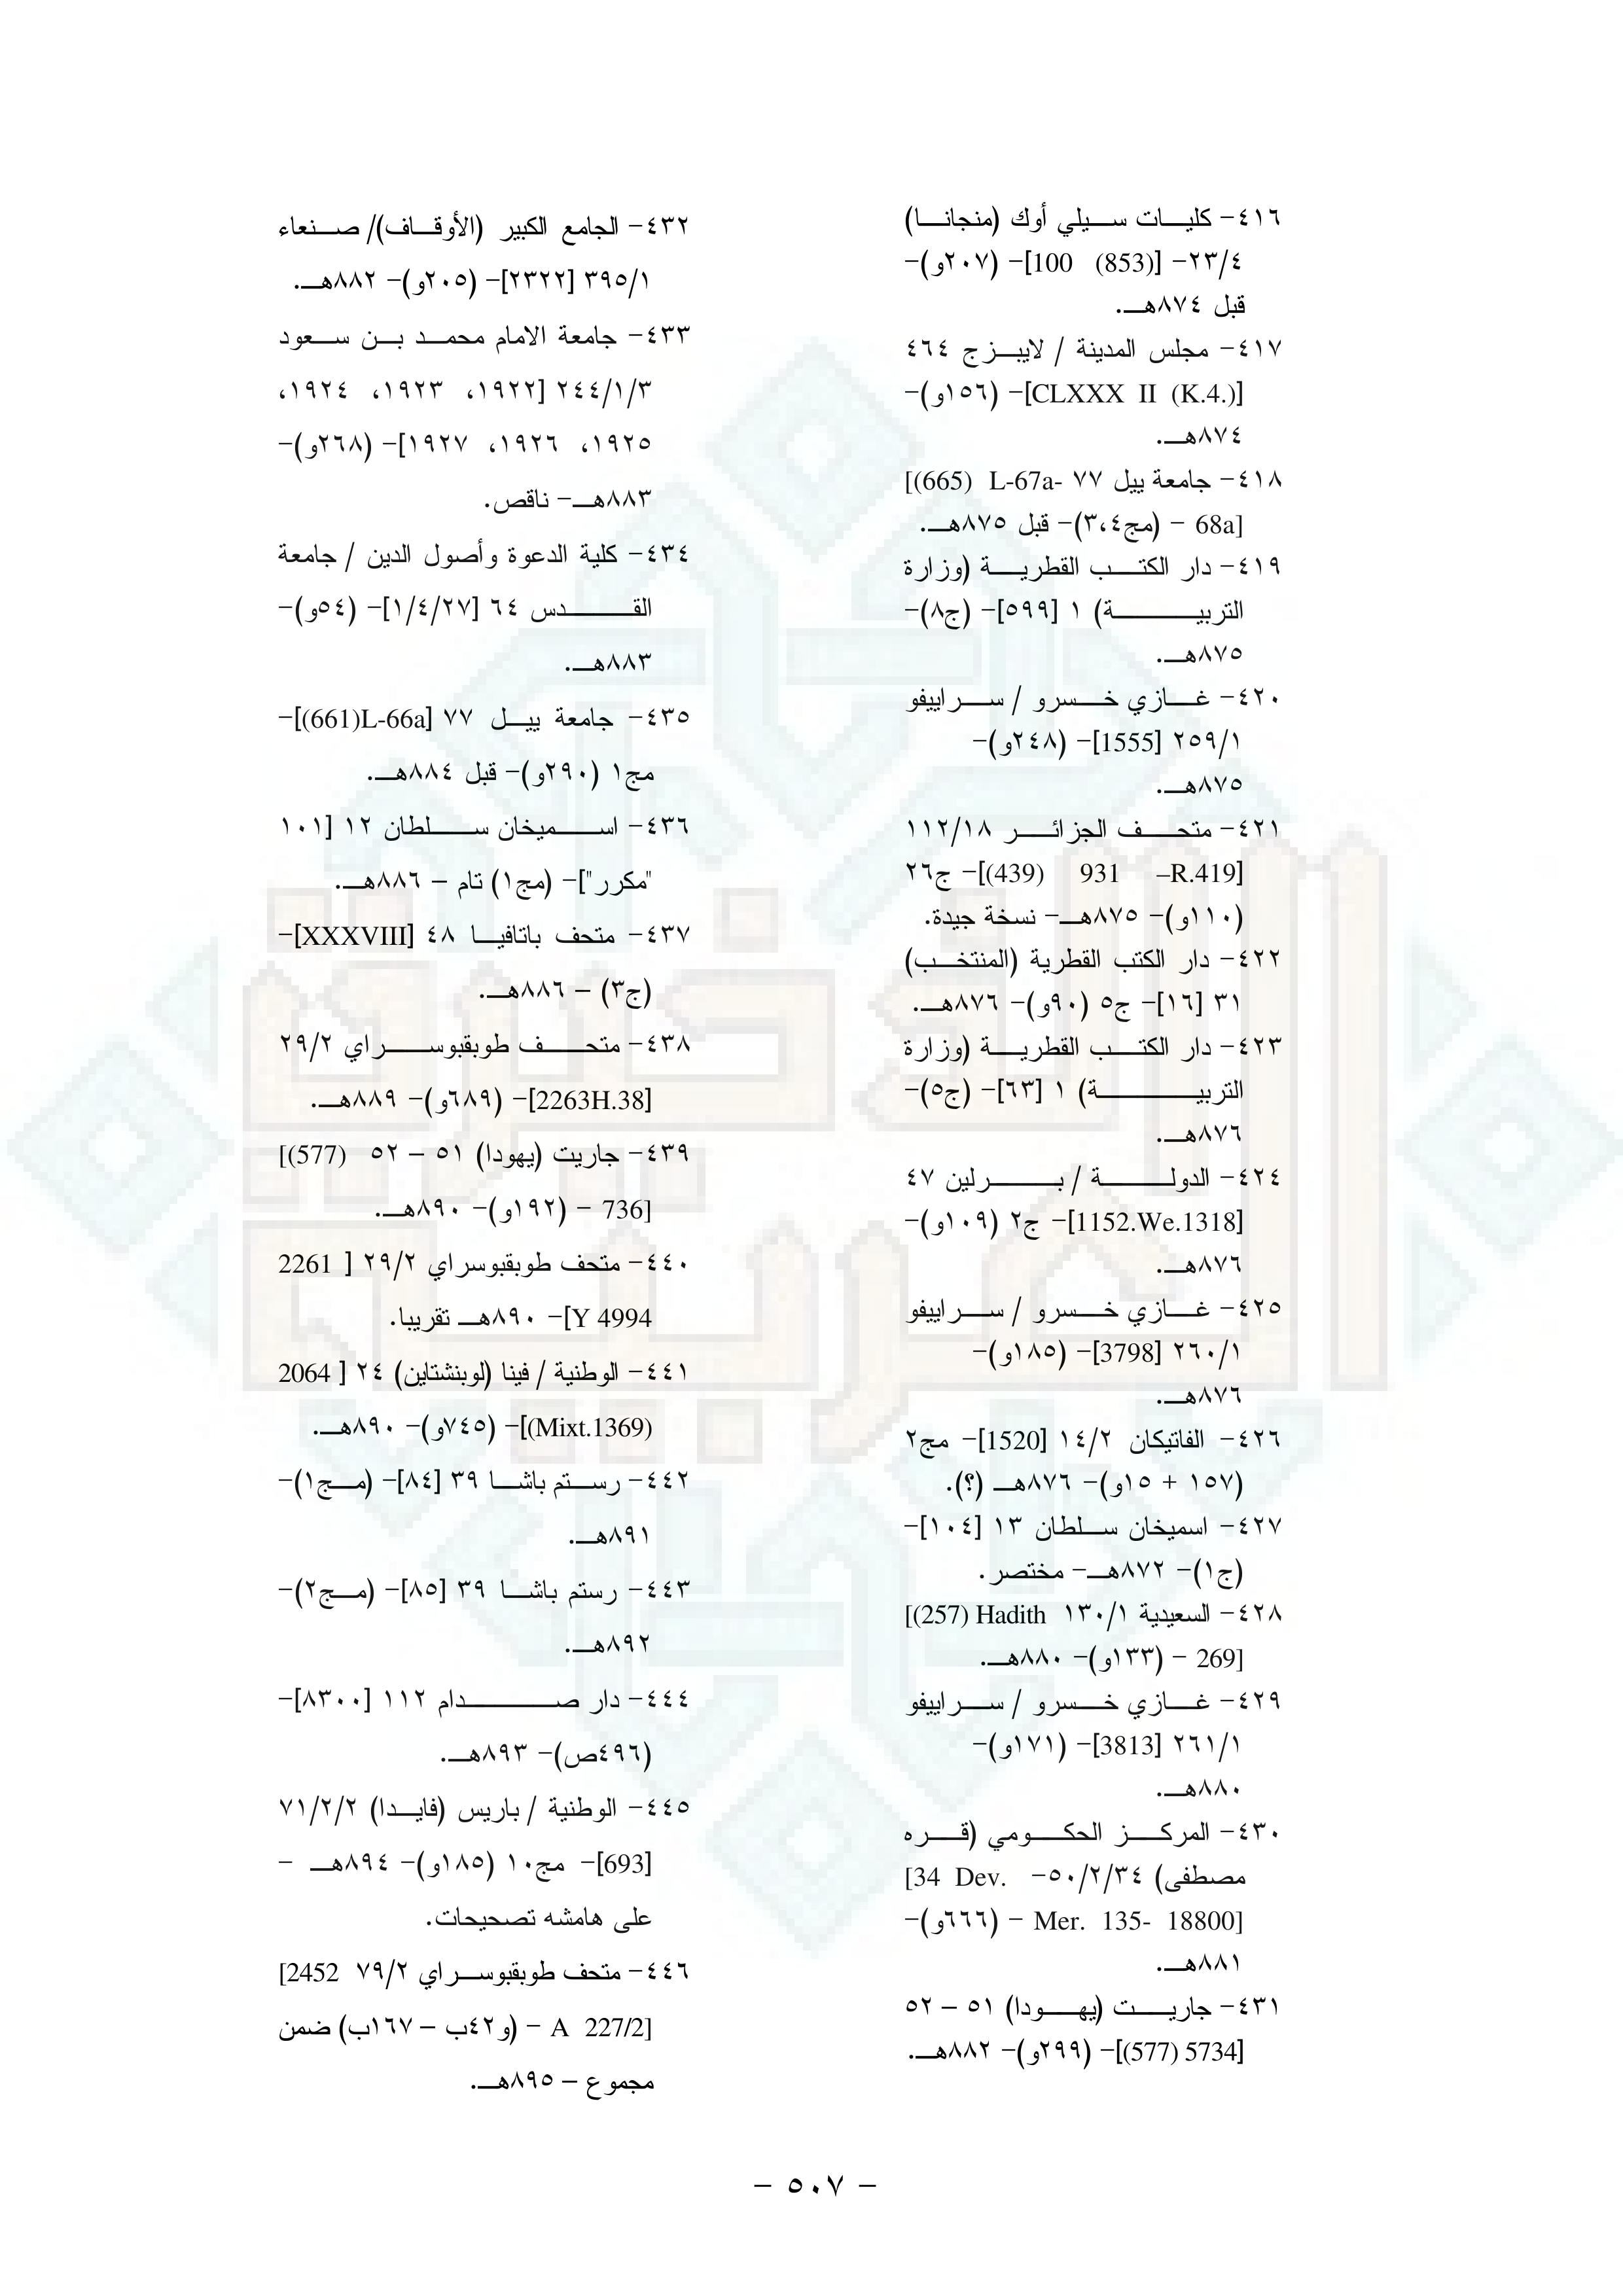 ٤١٦- كليات سيلي أوك (منجانا)
٢٣/٤- [(853) 100]- (٢٠٧و)-
قبل ٨٧٤هـ.
٤١٧- مجلس المدينة / لايبزج ٤٦٤
[CLXXX II (K.4.)]- (١٥٦و)-
٨٧٤هـ.
٤١٨- جامعة ييل ٧٧ [(665) L-67a-
68a] - (مج٣،٤)- قبل ٨٧٥هـ.
٤١٩- دار الكتب القطرية (وزارة
التربية) ١ [٥٩٩]- (ج٨)-
٨٧٥هـ.
٤٢٠- غازي خسرو / سراييفو
٢٥٩/١ [1555]- (٢٤٨و)-
٨٧٥هـ.
٤٢١- متحف الجزائر ١١٢/١٨
[(439) 931 –R.419]- ج٢٦
(١١٠و)- ٨٧٥هـ- نسخة جيدة.
٤٢٢- دار الكتب القطرية (المنتخب)
٣١ [١٦]- ج٥ (٩٠و)- ٨٧٦هـ.
٤٢٣- دار الكتب القطرية (وزارة
التربية) ١ [٦٣]- (ج٥)-
٨٧٦هـ.
٤٢٤- الدولة / برلين ٤٧
[1152.We.1318]- ج٢ (١٠٩و)-
٨٧٦هـ.
٤٢٥- غازي خسرو / سراييفو
٢٦٠/١ [3798]- (١٨٥و)-
٨٧٦هـ.
٤٢٦- الفاتيكان ١٤/٢ [1520]- مج٢
(١٥٧ + ١٥و)- ٨٧٦هـ (؟).
٤٢٧- اسميخان سلطان ١٣ [١٠٤]-
(ج١)- ٨٧٢هـ- مختصر.
٤٢٨- السعيدية ١٣٠/١ [(257) Hadith
269] - (١٣٣و)- ٨٨٠هـ.
٤٢٩- غازي خسرو / سراييفو
٢٦١/١ [3813]- (١٧١و)-
٨٨٠هـ.
٤٣٠- المركز الحكومي (قره
مصطفى) ٥٠/٢/٣٤- [34 Dev.
Mer. 135- 18800] - (٦٦٦و)-
٨٨١هـ.
٤٣١- جاريت (يهودا) ٥١ – ٥٢
[(577) 5734]- (٢٩٩و)- ٨٨٢هـ.
٤٣٢- الجامع الكبير (الأوقاف)/ صنعاء
٣٩٥/١ [٢٣٢٢]- (٢٠٥و)- ٨٨٢هـ.
٤٣٣- جامعة الامام محمد بن سعود
٢٤٤/١/٣ [١٩٢٢، ١٩٢٣، ١٩٢٤،
١٩٢٥، ١٩٢٦، ١٩٢٧]- (٢٦٨و)-
٨٨٣هـ- ناقص.
٤٣٤- كلية الدعوة وأصول الدين / جامعة
القدس ٦٤ [١/٤/٢٧]- (٥٤و)-
٨٨٣هـ.
٤٣٥- جامعة ييل ٧٧ [(661)L-66a]-
مج١ (٢٩٠و)- قبل ٨٨٤هـ.
٤٣٦- اسميخان سلطان ١٢ [١٠١
"مكرر"]- (مج١) تام – ٨٨٦هـ.
٤٣٧- متحف باتافيا ٤٨ [XXXVIII]-
(ج٣) – ٨٨٦هـ.
٤٣٨- متحف طوبقبوسراي ٢٩/٢
[2263H.38]- (٦٨٩و)- ٨٨٩هـ.
٤٣٩- جاريت (يهودا) ٥١ – ٥٢ [(577)
736] - (١٩٢و)- ٨٩٠هـ.
٤٤٠- متحف طوبقبوسراي ٢٩/٢ [ 2261
Y 4994]- ٨٩٠هـ تقريبا.
٤٤١- الوطنية / فينا (لوبنشتاين) ٢٤ [ 2064
(Mixt.1369)]- (٧٤٥و)- ٨٩٠هـ.
٤٤٢- رستم باشا ٣٩ [٨٤]- (مج١)-
٨٩١هـ.
٤٤٣- رستم باشا ٣٩ [٨٥]- (مج٢)-
٨٩٢هـ.
٤٤٤- دار صدام ١١٢ [٨٣٠٠]-
(٤٩٦ص)- ٨٩٣هـ.
٤٤٥- الوطنية / باريس (فايدا) ٧١/٢/٢
[693]- مج١٠ (١٨٥و)- ٨٩٤هـ -
على هامشه تصحيحات.
٤٤٦- متحف طوبقبوسراي ٧٩/٢ [2452
A 227/2] - (و٤٢ب – ١٦٧ب) ضمن
مجموع – ٨٩٥هـ.
- ٥٠٧ -